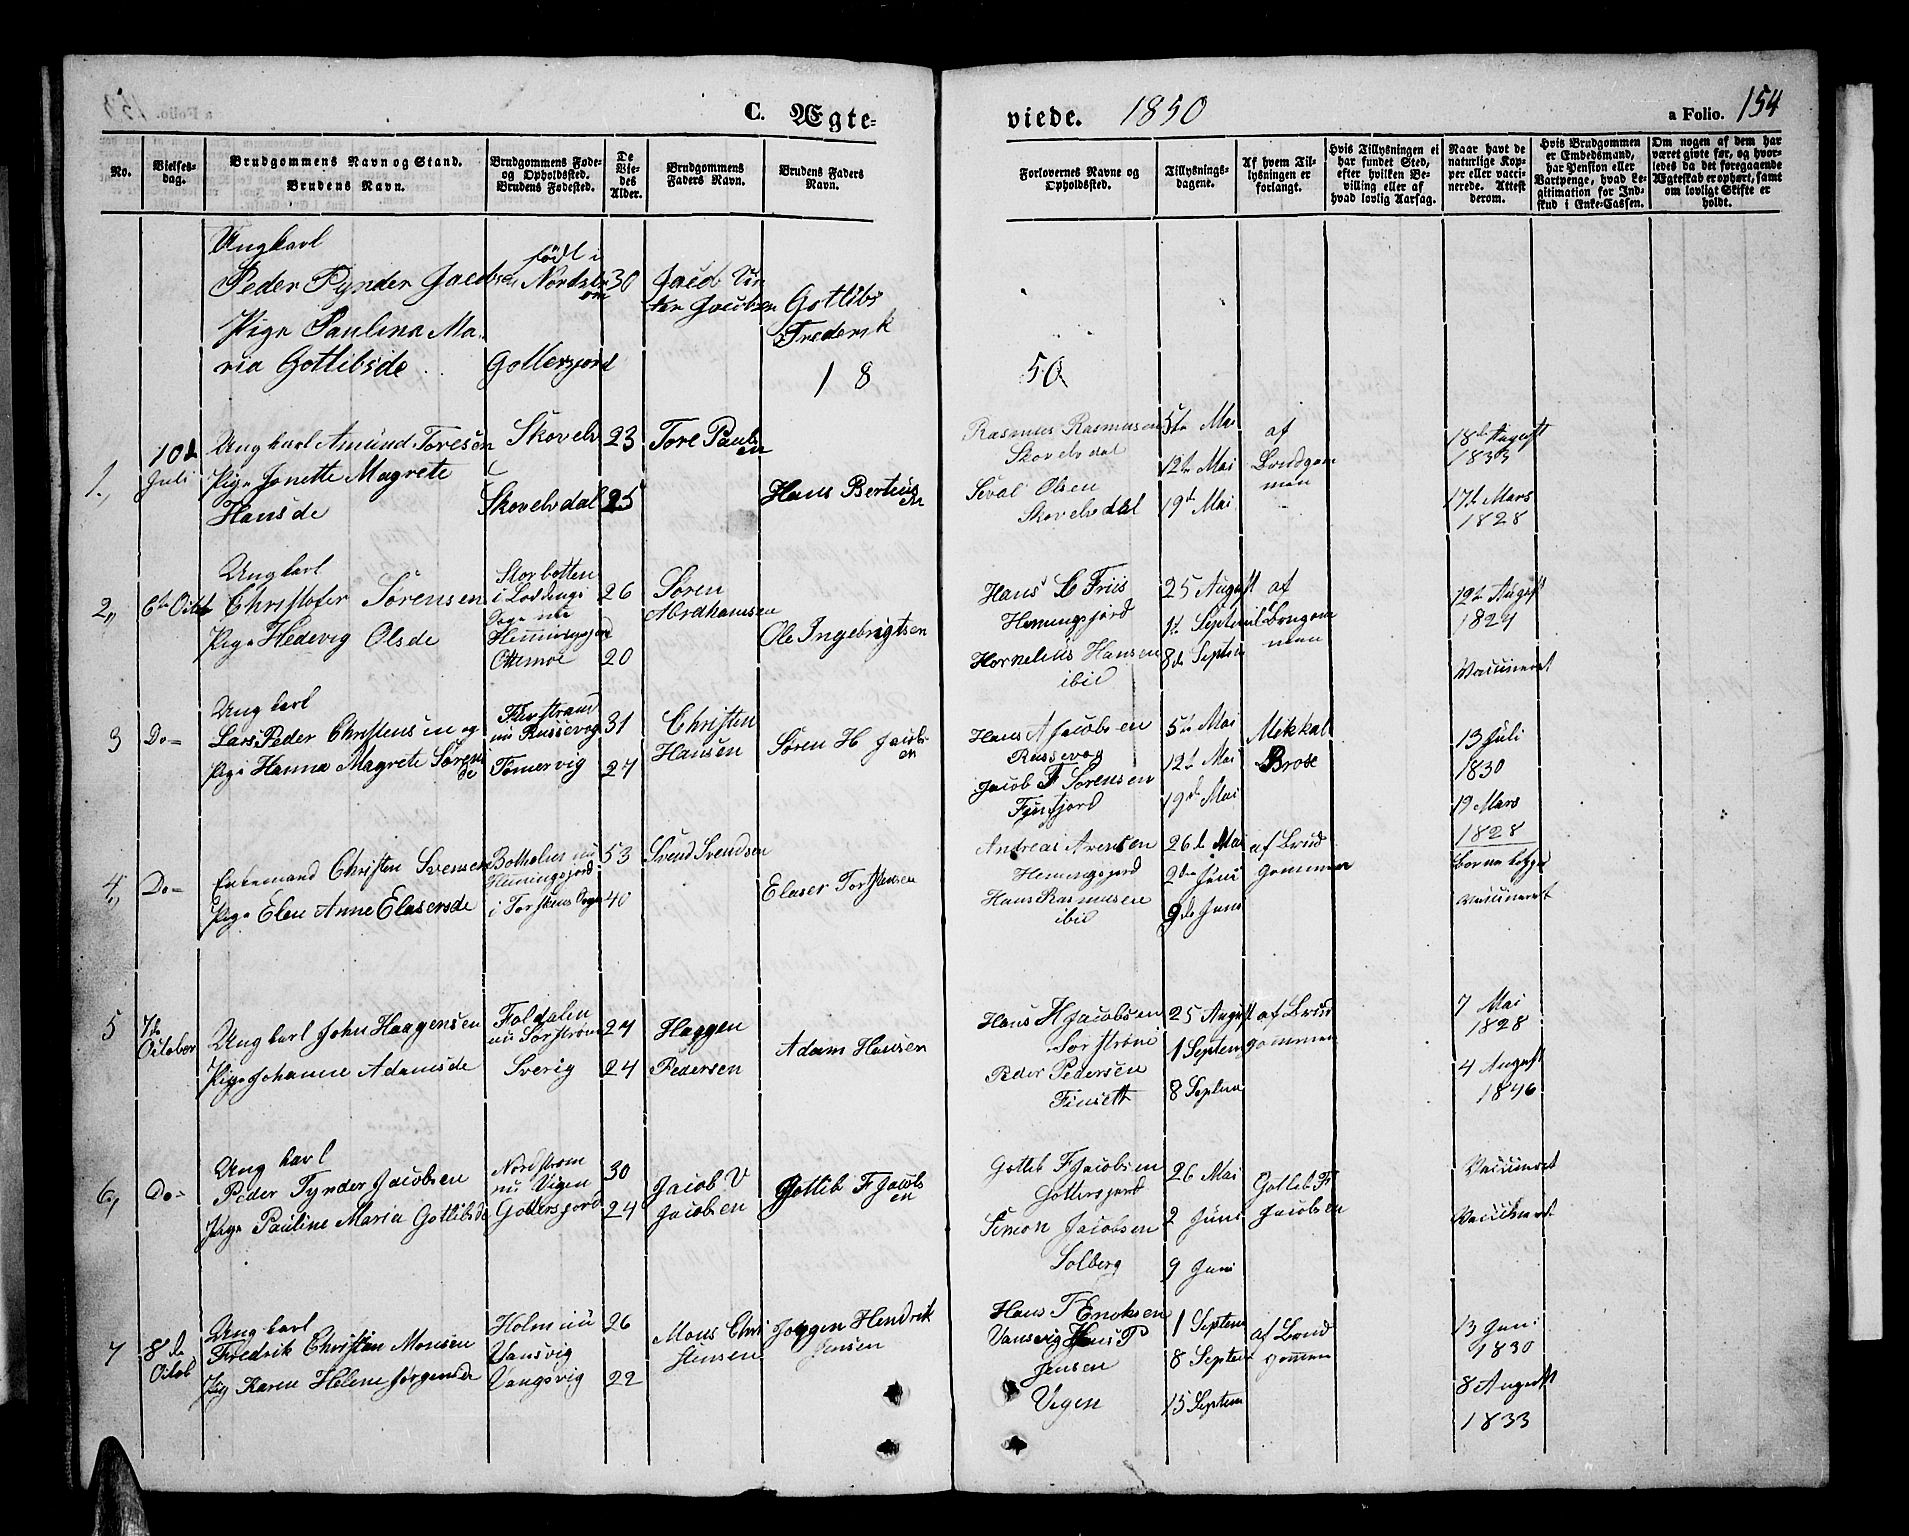 C. Ægte-
viede. 1850
a Folio. 154
No.
Vielses-
dag.
Brudgommens Navn og Stand.
Brudens Navn.
Brudgommens Føde-
og Opholdssted.
Brudens Fødested.
De
Vie-
des
Alder.
Brudgommens
Faders Navn.
Brudens Faders
Navn.
Forlovernes Navne og
Opholdssted.
Tillysnings-
dagene.
Af hvem Til-
lysningen er
forlangt.
Hvis Tillysningen ei
har fundet Sted,
efter hvilken Be-
villing eller af
hvad lovlig Aarsag.
Naar havt de
naturlige Kop-
per eller vacci-
nerede. Attest
derom.
Hvis Brudgommen
er Embedsmand,
har Pension eller
Vartpenge, hvad Le-
gitimation for Ind-
skud i Enke-Cassen.
Om nogen af dem har
været givte før, og hvor-
ledes da det foregaaende
Ægteskab er ophørt, samt
om lovligt Skifte er
holdt.
Ungkarl
Peder Tynder Jacobsen
Pige Paulina Ma-
ria Gottlibsde
født i
Nordstr
øm
Gottersfjord
30
Jacob Vin
ter Jacobsen
Gotlibs
Frederik
18
50
1,
10d
Juli
Ungkarl Amund Toresen
Pige Jonette Magrete
Hansde
Skovelv
Skovelvdal
23
25
Tore Pauls
en
Hans Bertius
en
Rasmus Rasmusen
Skovelvdal
Sival Olsen
Skovelvdal
5te Mai
12te Mai
19d Mai
af
Brudgom
men
18de August
1833
17de Mars
1828
2,,
6te Octob
Ungkarl
Christofer Sørensen
Pige Hedevig Olsde
Storbotten
i Lødings
Sogn nu
Hemingsfjord
Ottemoe
26
20
Søren
Abrahamsen
Ole Ingebrigtsen
Hans C Friis
Hemingsfjord
Hornelius Hansen
ibid
25 August
1te Septemb
8de Septem
af
Brugom
men
12te August
1827
Vaccineret
3
Do=
Ungkarl
Lars Peder Christensen og
Pige Hanna Magrete Sørens
de
nu Russevog
Tømervig
31
27
Christen
Hansen
Søren H Jacobs
en
Hans A Jacobsen
Russevog
Jacob F Sørensen
5te Mai
12te Mai
19de Mai
Mekkal
Brose
13 Juli
1830
19 Mars
1828
4,,
Do=
Enkemand Christen Svensen
Pige Elen Anne Elasersde
Botnelven nu
Hemingsfjord
i Torskens Sogn
53
40
Svend Svendsen
Elaser Torstensen
Andreas Arentsen
Hemingsfjord
Hans Rasmusen
ibid
26de Mai
2den Juni
9de Juni
af Brud
gommen
Vaccineret
5
7de
October
Ungkarl John Haagensen
Pige Johanne Adamsde
Foldalen
nu Sørstrøm
Sverig
27
24
Haggen
Pedersen
Adam Hansen
Hans H Jacobsen
Sørstrøm
Peder Pedersen
Finsett
25 August
1 Septem
8 Septem
af Brud
gommen
7 Mai
1828
4 August
1846
6,
Do=
Ung karl
Peder Tynder Jacobsen
Pige Pauline Maria Gotlibsde
Nordstrøm
nu Vigen
Gottersfjord
30
24
Jacob V
Jacobsen
Gottlib F Jacobs
en
Gotlieb F Jacobsen
Gottersfjord
Simon Jacobsen
Solberg
26 Mai
2 Juni
9 Juni
Gotlib F
Jacobsen
Vaccineret
Vaccineret
7
8de
Octob
Ungkarl
Fredrik Christian Monsen
Pig Karen Helene Jørgensde
Holm nu
Vansvig
Vangsvig
26
22
Mons Chri
stensen
Jørgen Hendrik
Jensen
Hans T Enoksen
Vansvig Hans P
Jensen
Vigen
1 Septem
8 Septem
15 Septem
af Brud
gommen
13 Juni
1830
8 August
1833